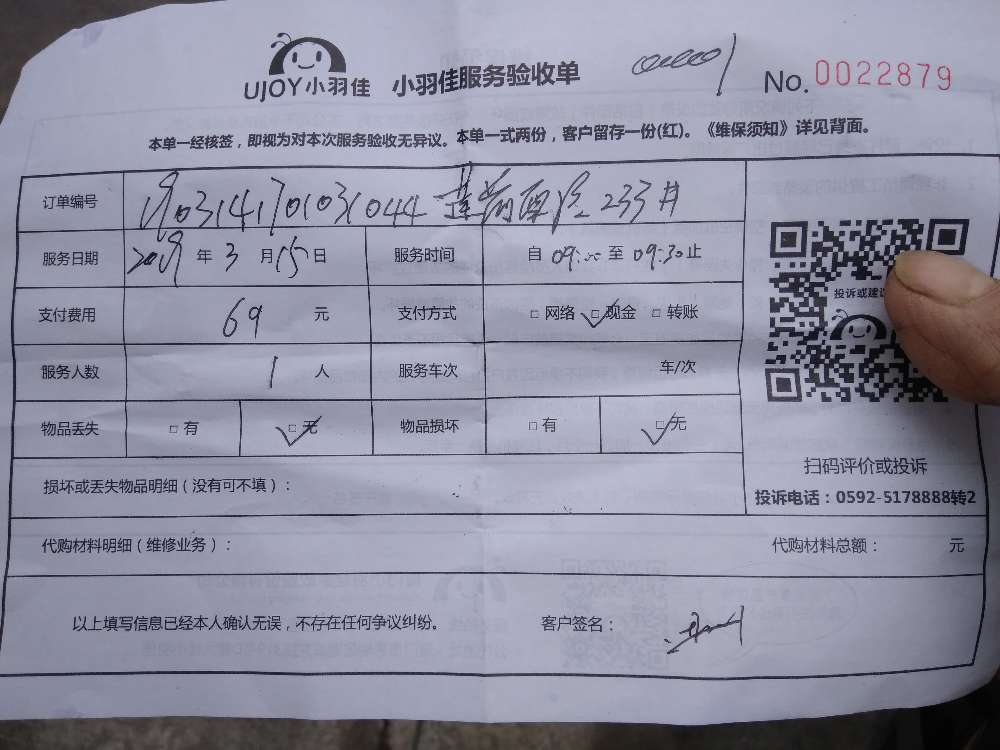 UJOY小羽佳 小羽佳服务验收单 No.0022879
本单一经核签，即视为对本次服务验收无异议。本单一式两份，客户留存一份(红)。《维保须知》详见背面。
订单编号 1903141701031044
服务日期 2019年3月15日 服务时间 自09:00至09:30止
支付费用 69元 支付方式 □网络 □现金 □转账
服务人数 1人 服务车次 车/次
物品丢失 □有 □无 物品损坏 □有 □无
损坏或丢失物品明细（没有可不填）：
代购材料明细（维修业务）： 代购材料总额： 元
以上填写信息已经本人确认无误，不存在任何争议纠纷。 客户签名：
投诉或建议
扫码评价或投诉
投诉电话：0592-5178888转2